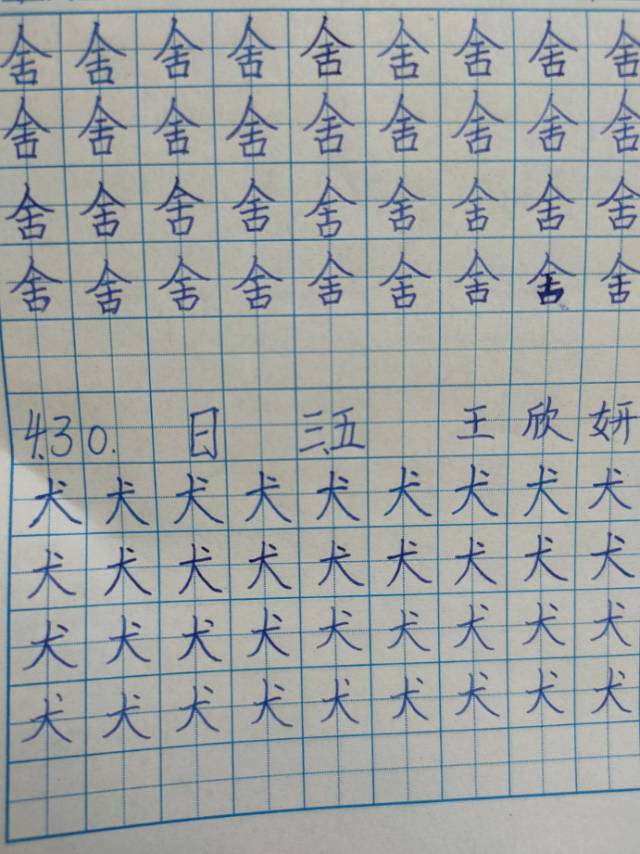 舍舍舍舍舍舍舍舍舍
舍舍舍舍舍舍舍舍舍
舍舍舍舍舍舍舍舍舍
舍舍舍舍舍舍舍舍舍
4.30. 日 三.五 王欣妍
犬犬犬犬犬犬犬犬犬
犬犬犬犬犬犬犬犬犬
犬犬犬犬犬犬犬犬犬
犬犬犬犬犬犬犬犬犬